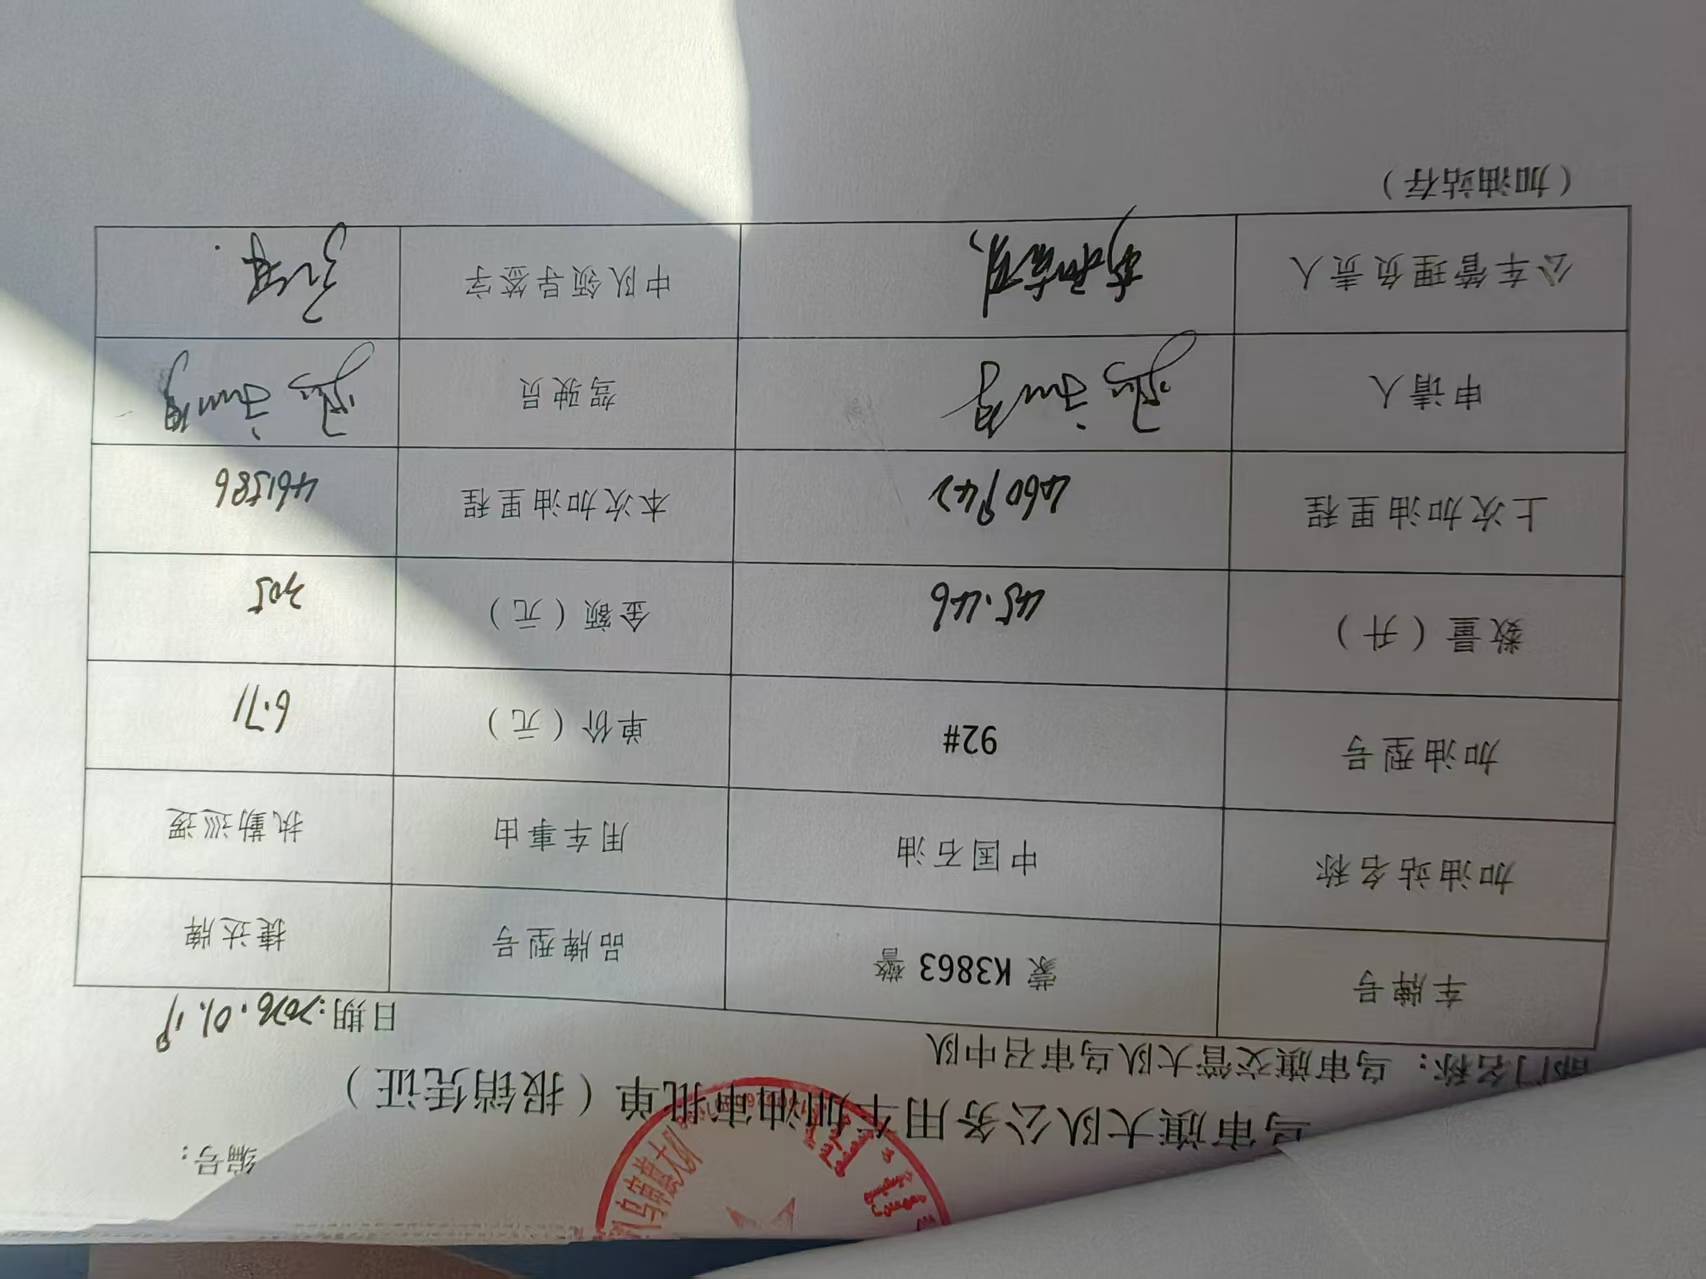 编号：
乌审旗大队公务用车加油审批单（报销凭证）
部门名称：乌审旗交管大队乌审召中队 日期：2026.01.19
车牌号 蒙 K3863 警 品牌型号 捷达牌
加油站名称 中国石油 用车事由 执勤巡逻
加油型号 92# 单价（元） 6.71
数量（升） 45.46 金额（元） 305
上次加油里程 460942 本次加油里程 461586
申请人 驾驶员
公车管理负责人 中队领导签字
（加油站存）